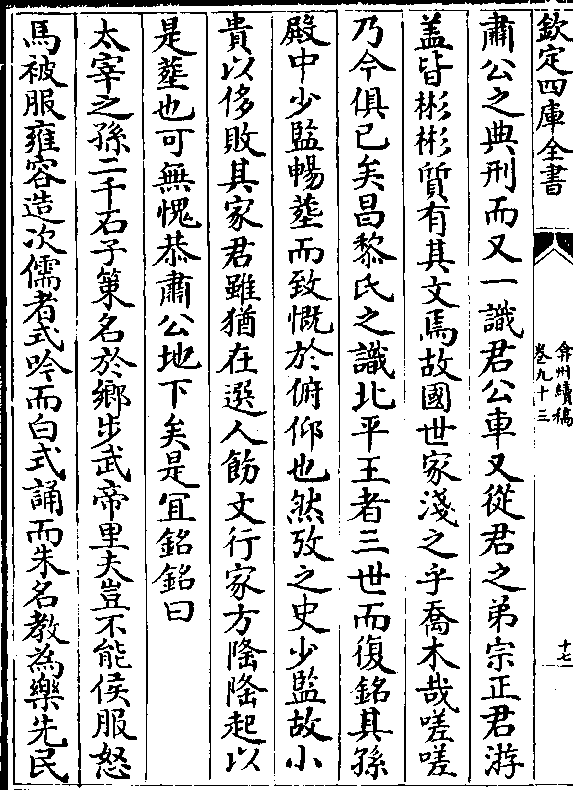 欽定四庫全書
弇州續稿
卷九十三
十七
肅公之典刑而又一識君公車又從君之弟宗正君游
盖皆彬彬質有其文焉故國世家淺之乎喬木哉嗟嗟
乃今俱已矣昌黎氏之識北平王者三世而復銘其孫
殿中少監暢塟而致慨於俯仰也然攷之史少監故小
貴以侈敗其家君雖猶在選人飭文行家方隆隆起以
是塟也可無愧恭肅公地下矣是宜銘銘曰
太宰之孫二千石子第名於鄉步武帝里夫豈不能侯服怒
馬被服雍容造次儒者式吟而白式誦而朱名教為樂先民